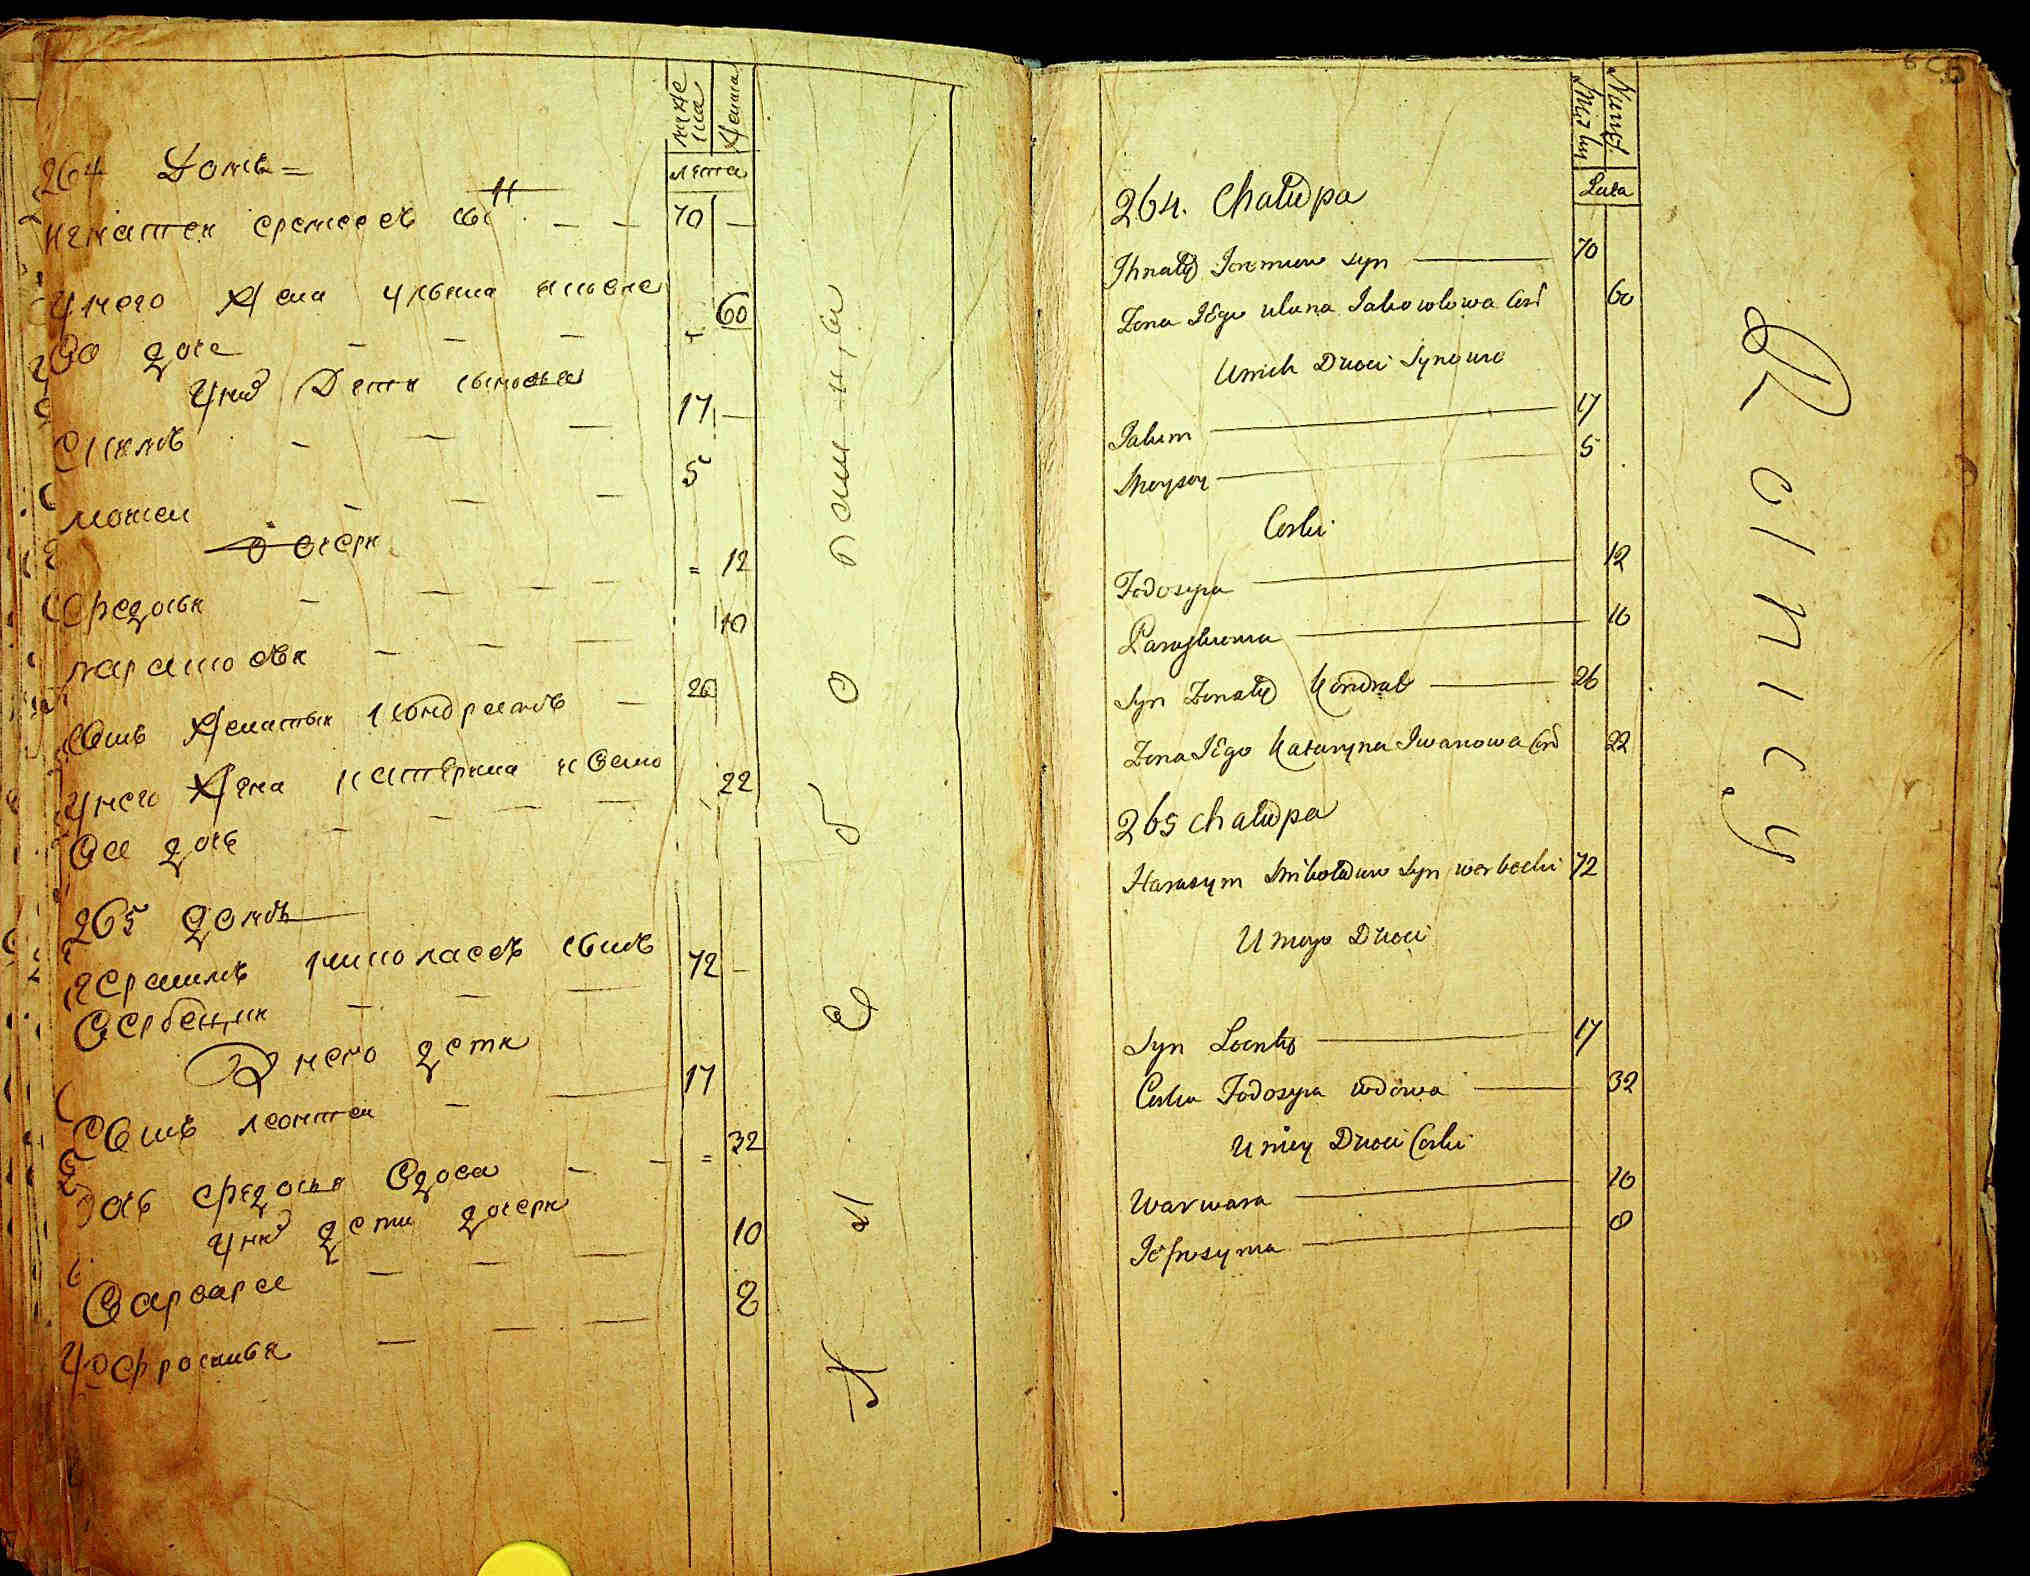 264 Домъ
мужеска
женска
лета
Игнатеи еремеевъ сы н 70
У него жена ульяна яковле
ва дочь 60
У них дети сыновья
Якимъ 17
Моисеи 5
дочери
Федосья 12
парасковья 10
сынъ женатыи кондратъ 26
У него жена катерина ивано
ва дочь 22
265 домъ
герасимъ николаевъ сынъ 72
вербецки
У него дети
Сынъ леонтеи 17
дочь федосья вдова 32
У ней дети дочери
Варвара 10
Ефросинья 8
Хлебопашцы
Męzkiey
Niewie.
Lata
264. Chałupa
Ihnatÿ Jeremiew syn 70
Zona IEgo Ulana Jakowlowa Cor 60
U nich Dzieci Synowie
Jakim 17
Moysey 5
Corki
Fedosyia 12
Paraskiewia 10
Syn Zonatÿ Kondrat 26
Zona IEgo Kataryna Iwanowa Cor 22
265 chałupa
Harasym Mikołaiow Syn werbecki 72
U niego Dzieci
Syn Leontÿ 17
Corka Fedosyia wdowa 32
U niey Dzieci Corki
Warwara 10
Jefrosynia 8
Rolnicy